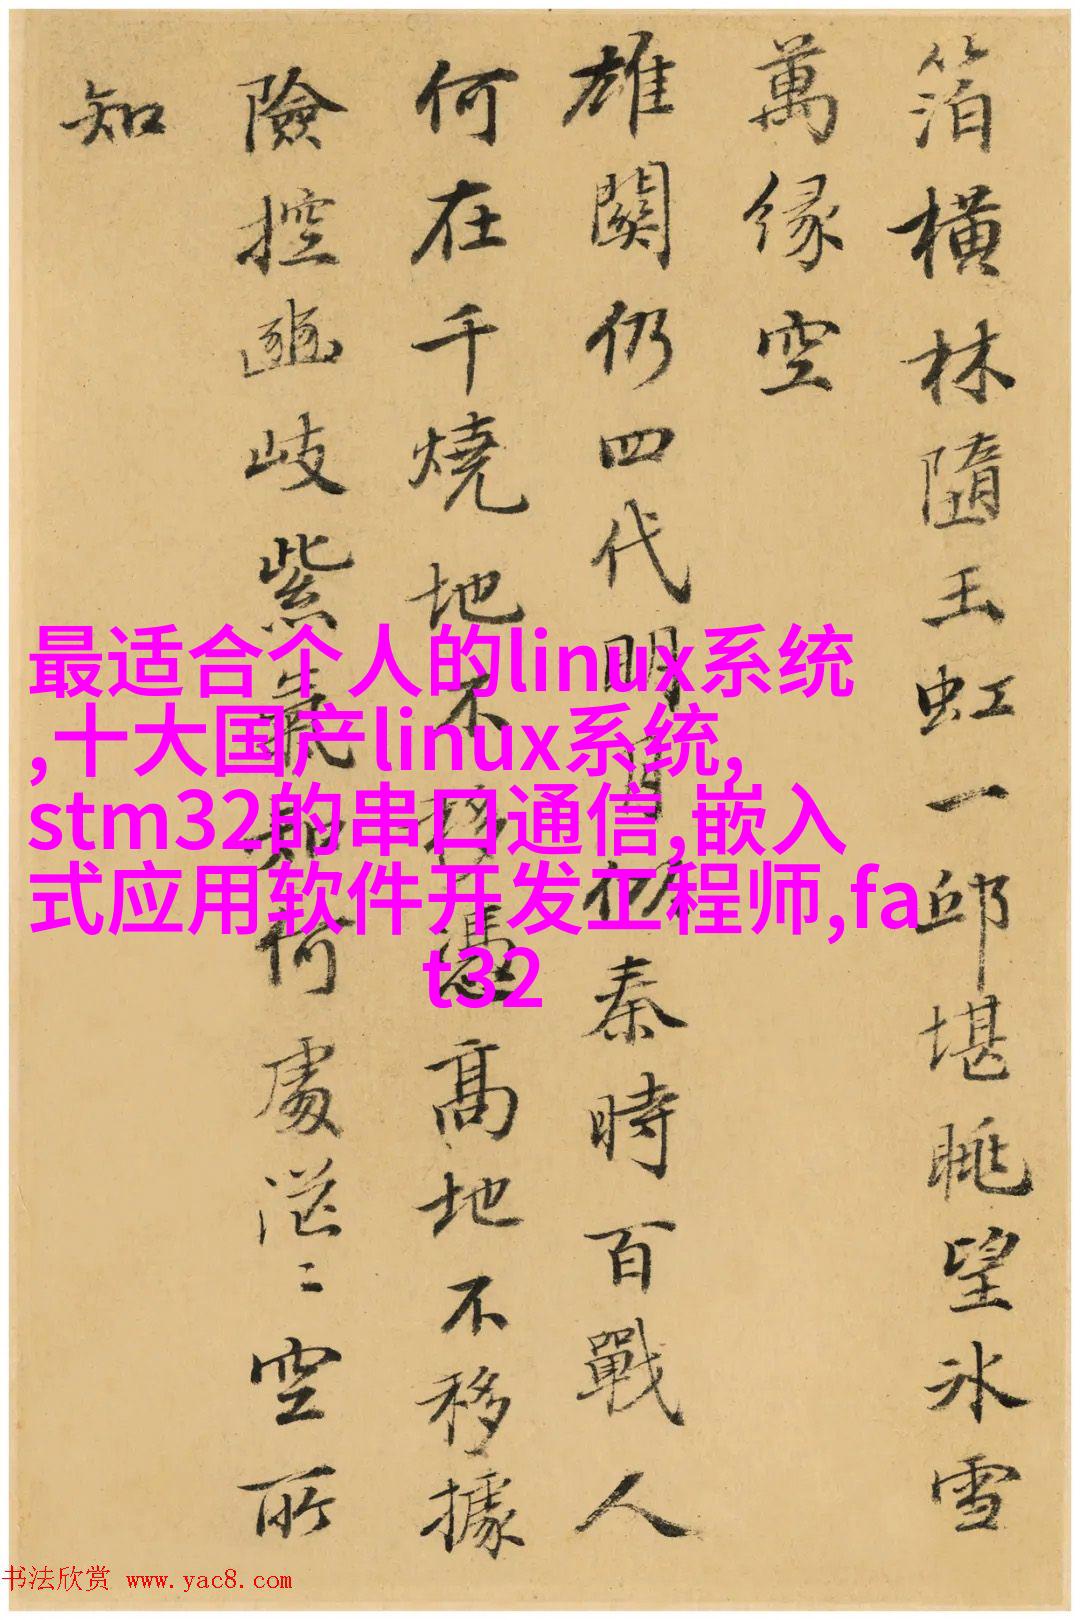 箔橫林隨玉虹一邱堪眺望冰雪
萬緣空
雄關仍四代明月仍秦時百戰人
何在千燒地不移憑高地不移據
險控幽岐紫氣却何處茫〻空所
知
最适合个人的linux系统
,十大国产linux系统,
stm32的串口通信,嵌入
式应用软件开发工程师,fa
t32
书法欣赏 www.yac8.com